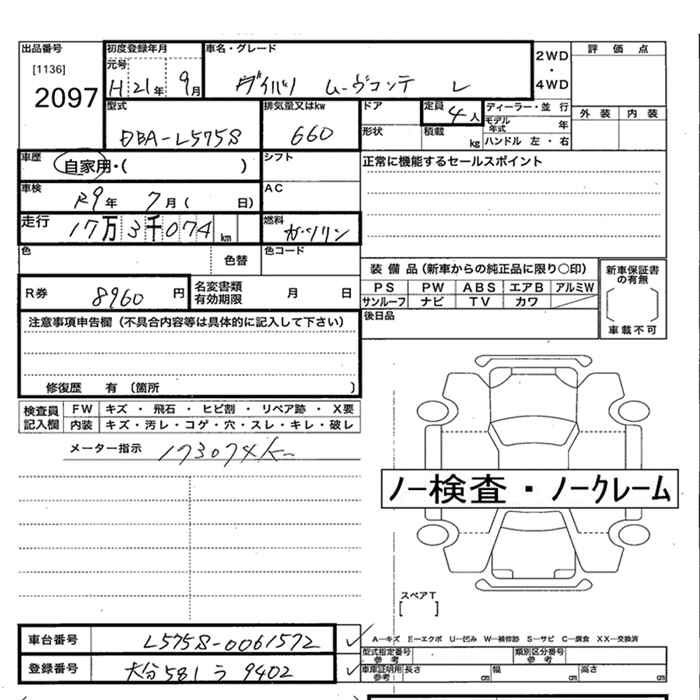 出品番号
[1136]
2097
初度登録年月
元号
H 21年 9月
車名・グレード
ダイハツ ムーヴコンテ L
2WD
・
4WD
評 価 点
外 装 内 装
型式
DBA-L575S
排気量又はkw
660
ドア
形状
定員
4人
積載
kg
ディーラー・並 行
モデル年式 年
ハンドル 左 ・ 右
車歴
自家用・( )
シフト
正常に機能するセールスポイント
車検
R9年 7月( 日)
AC
走行
17万3千074km
燃料
ガソリン
色
色替
色コード
R券
8960 円
名変書類
有効期限
月 日
装 備 品(新車からの純正品に限り○印)
PS PW ABS エアB アルミW
サンルーフ ナビ TV カワ
新車保証書
の有無
車載不可
後日品
注意事項申告欄(不具合内容等は具体的に記入して下さい)
修復歴 有 (箇所 )
検査員
記入欄
FW キズ ・ 飛石 ・ ヒビ割 ・ リペア跡 ・ X要
内装 キズ・汚レ・コゲ・穴・スレ・キレ・破レ
メーター指示 173074K
ノー検査・ノークレーム
スペアT
[ ]
車台番号 L575S-0061572
登録番号 大分 581 う 9402
A―キズ E―エクボ U―凹み W―補修跡 S―サビ C―腐食 XX―交換済
型式指定番号
参考
類別区分番号
参考
車庫証明用
参考:
長さ cm 幅 cm 高さ cm